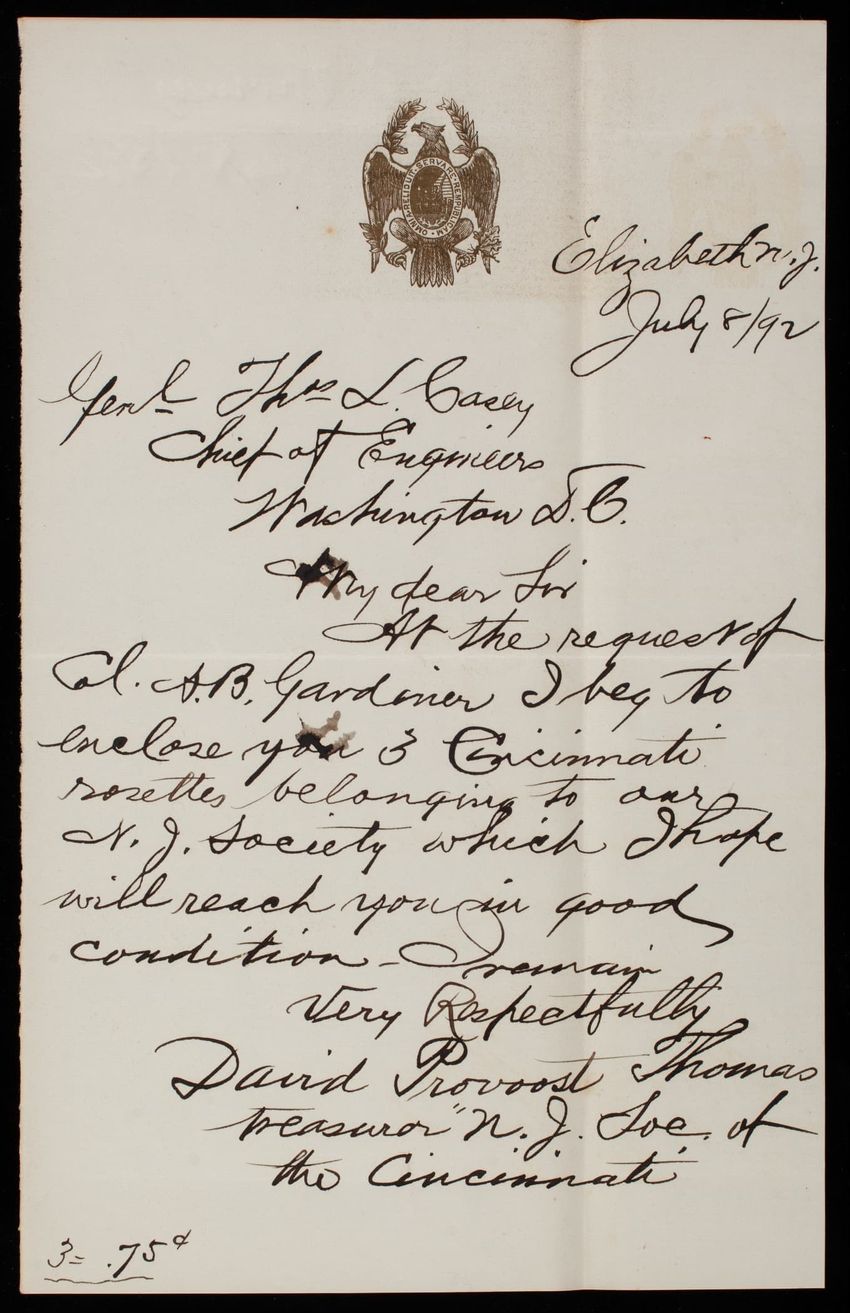 OMNIA RELIQUIT SERVARE REMPUBLICAM
Elizabeth N. J.
July 8/92
Genl. Thos L. Casey
Chief of Engineers
Washington D.C.
My dear Sir
At the request of
Col. A.B. Gardiner I beg to
enclose you 3 Cincinnati
rosettes belonging to our
N. J. Society which I hope
will reach you in good
condition - I remain
Very Respectfully
David Provoost Thomas
treasuror" N. J. Soc. of
the Cincinnati
3 = .75¢